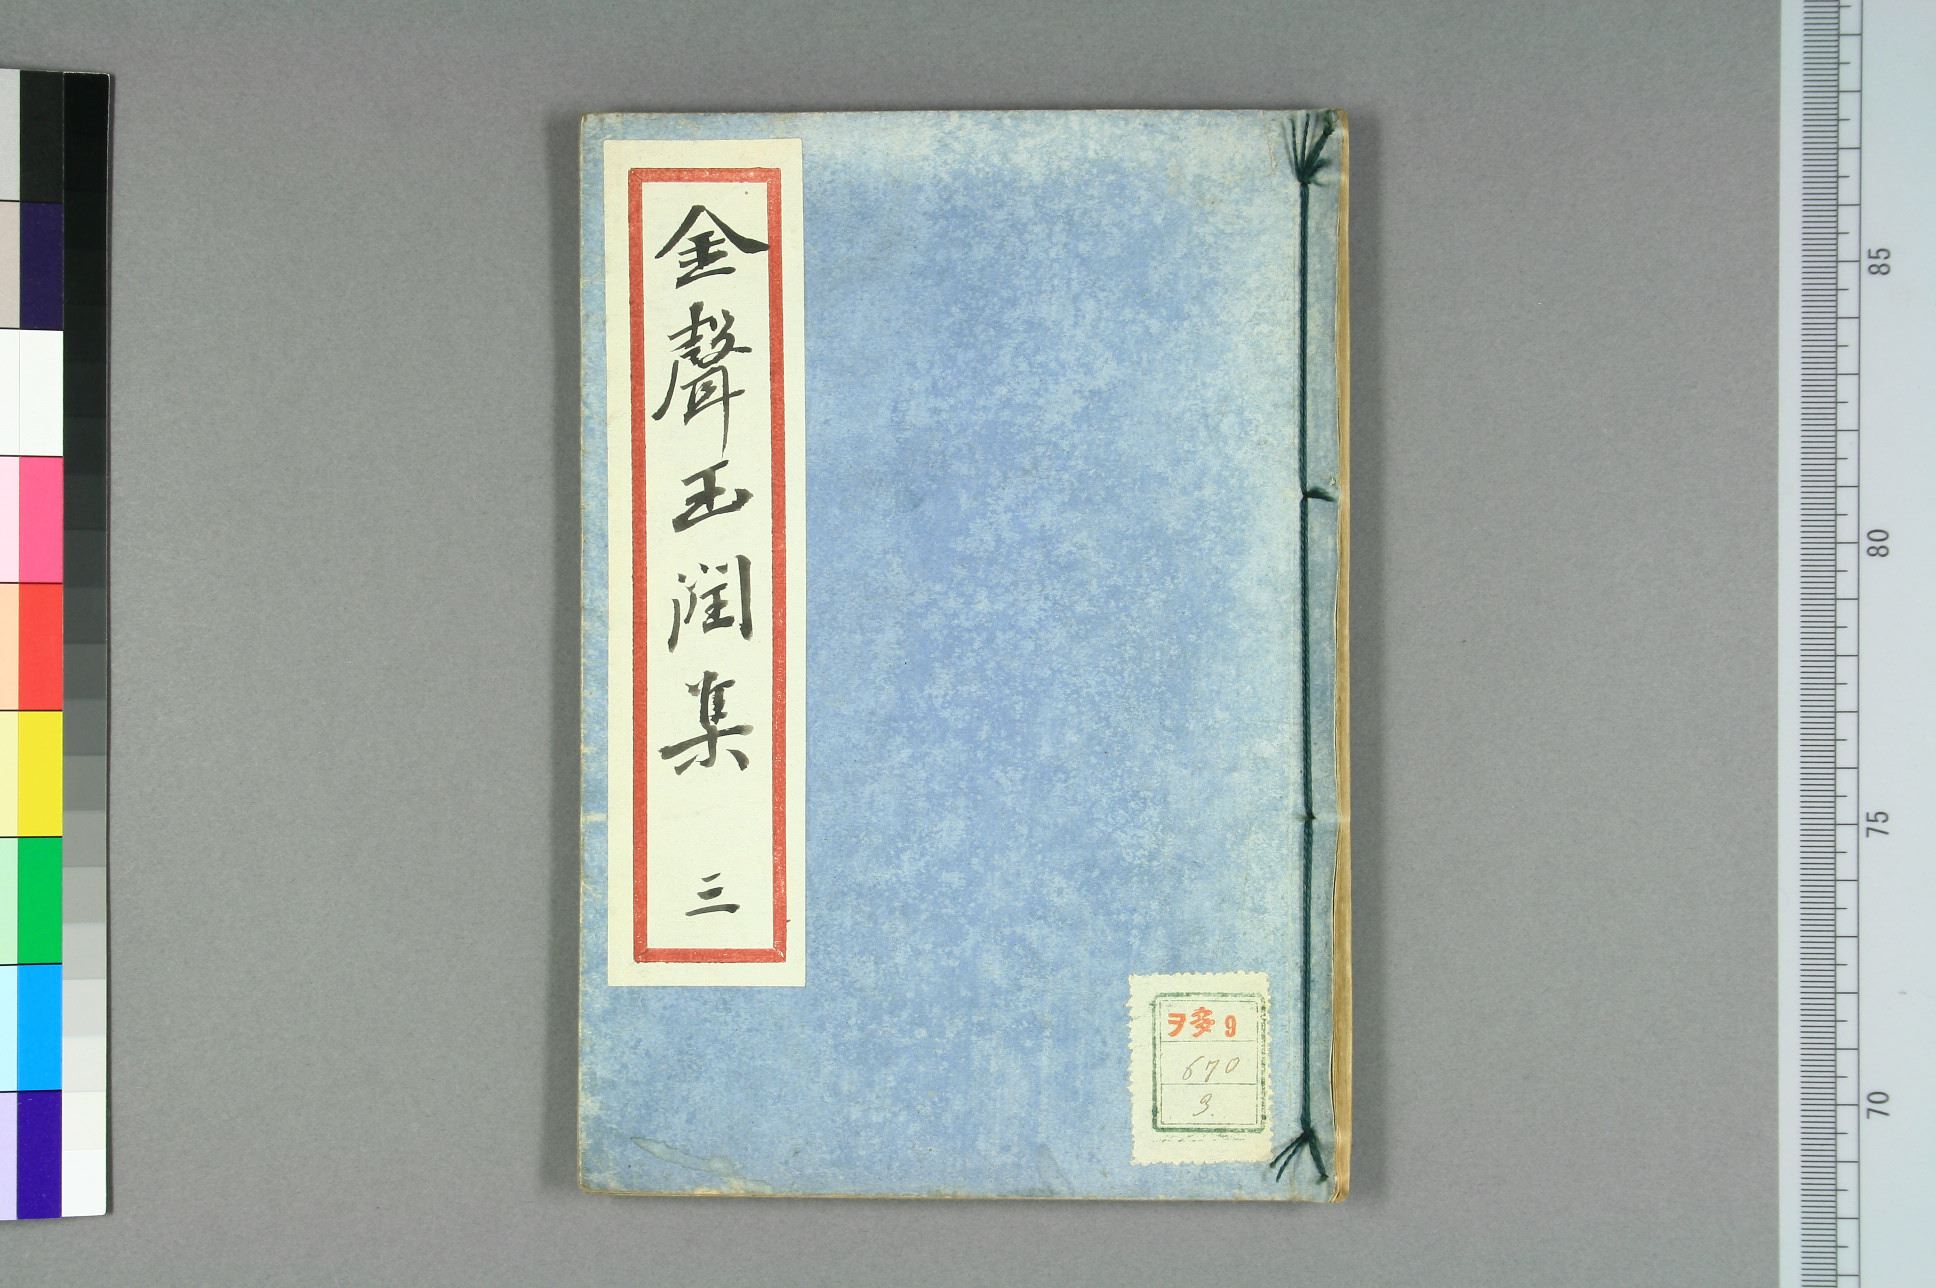 金聲玉潤集
三
ヲ多9
670
3.
85
80
75
70